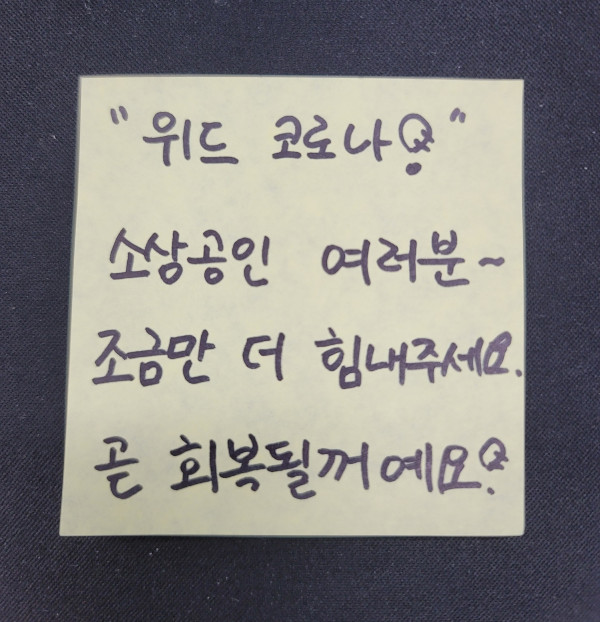 "위드 코로나!"
소상공인 여러분~
조금만 더 힘내주세요.
곧 회복될꺼예요!